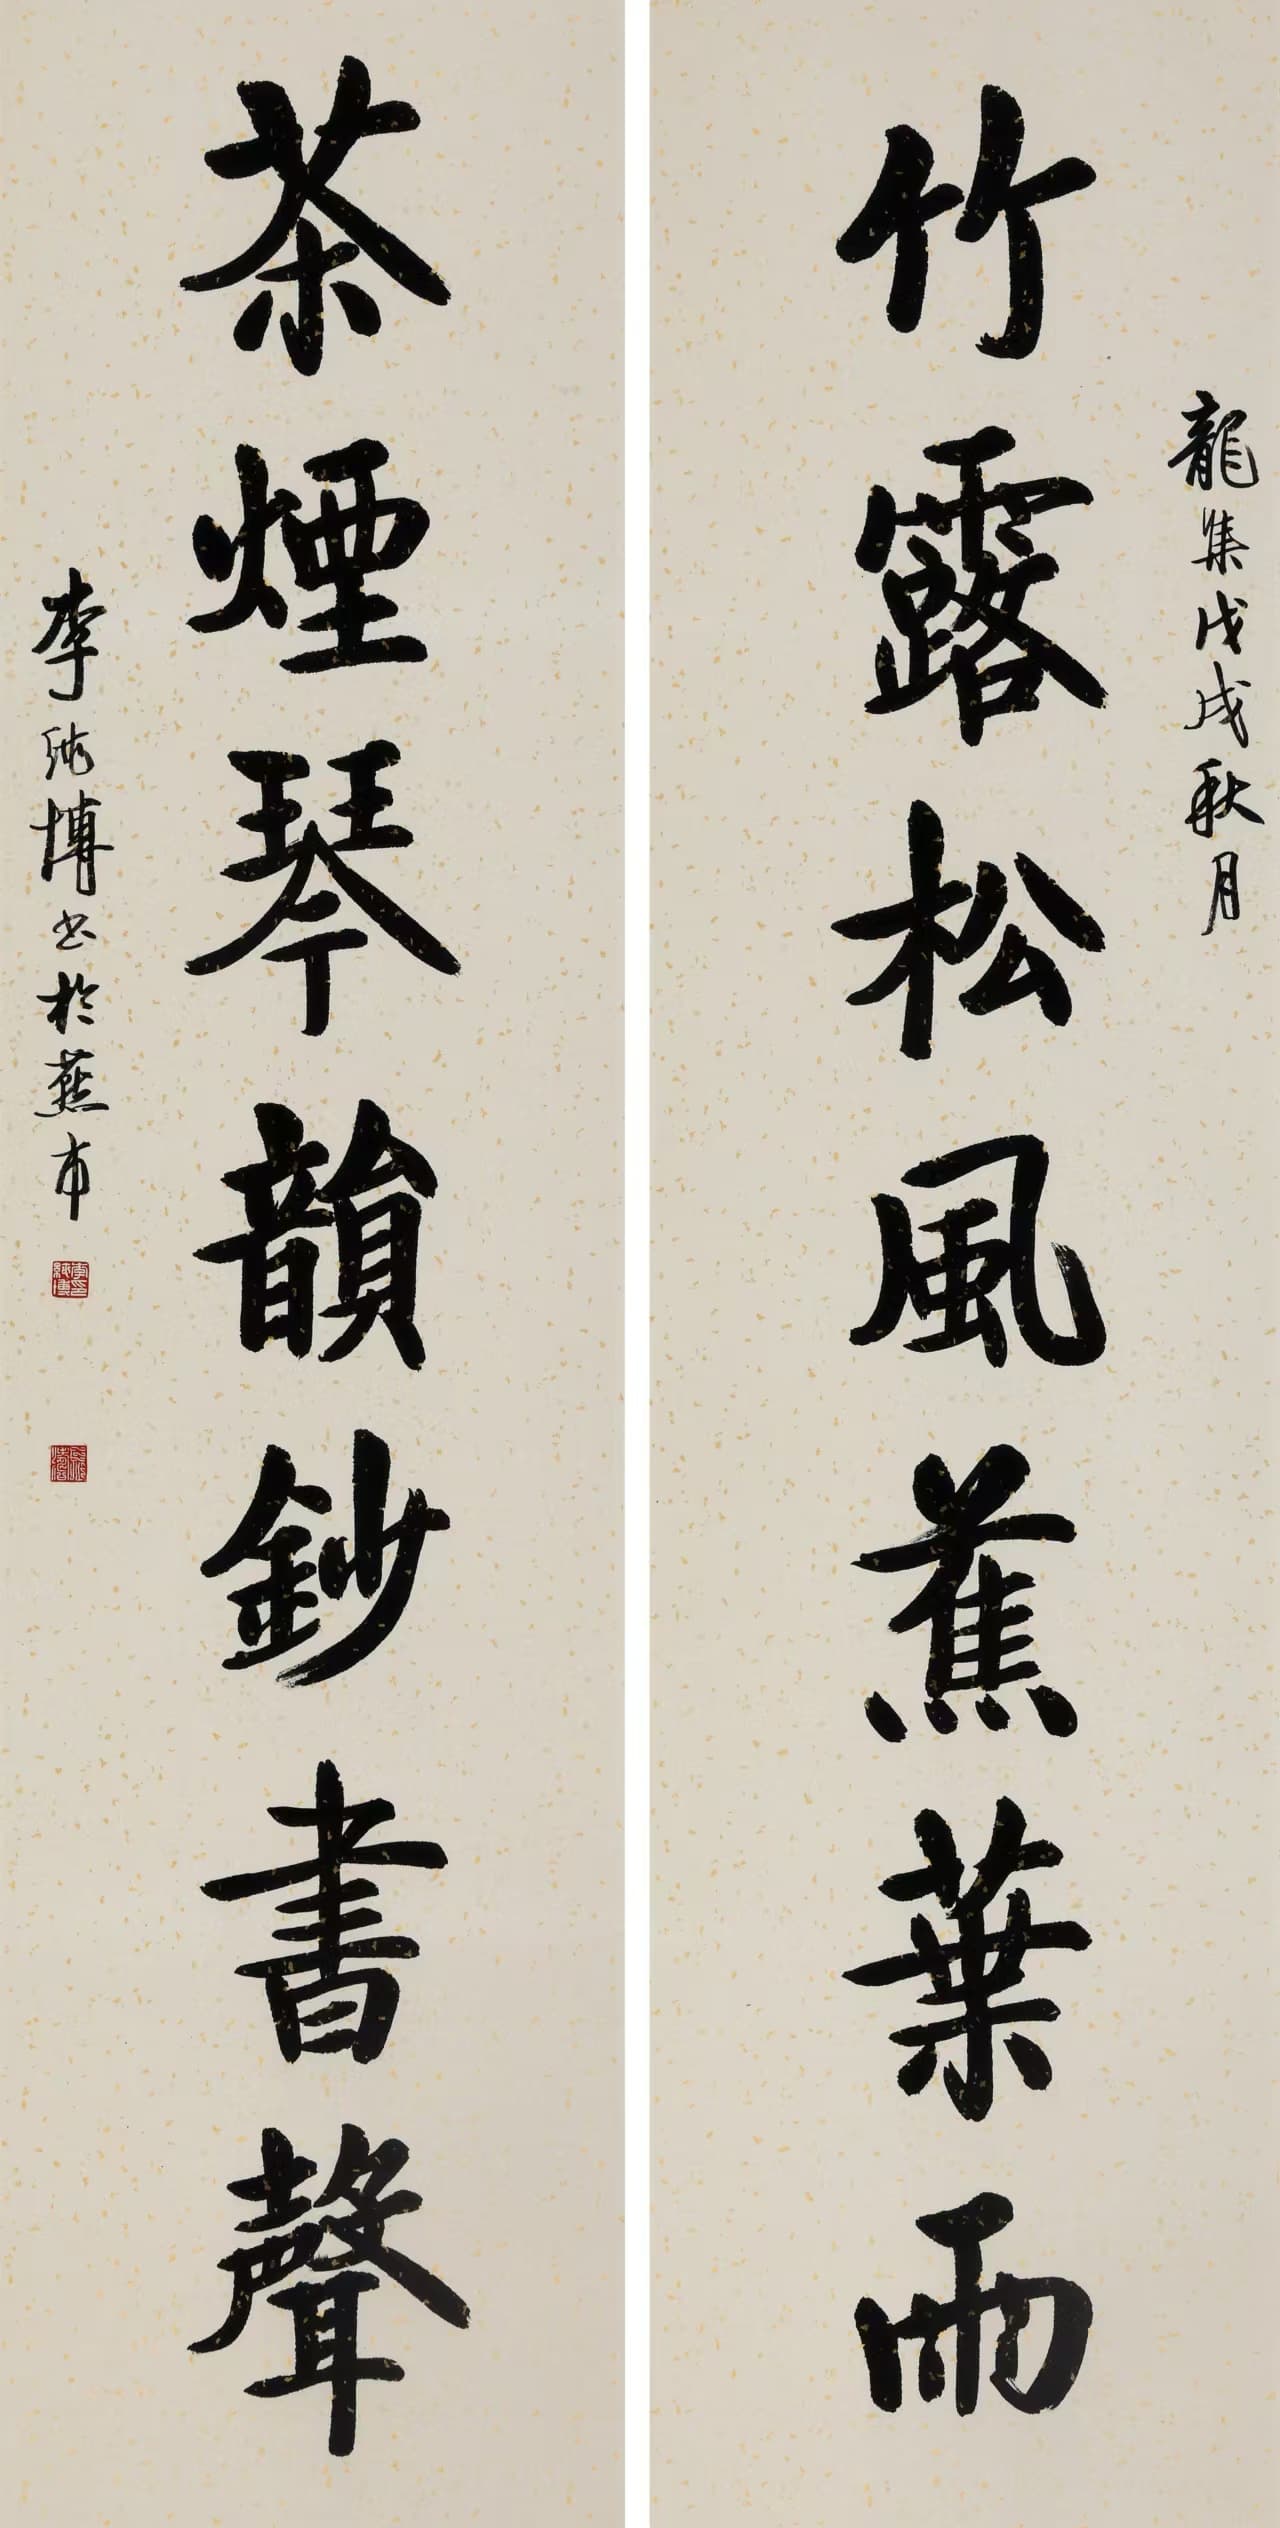 龍集戊戌秋月
竹露松風蕉葉雨
茶煙琴韻鈔書聲
李純博书於燕市